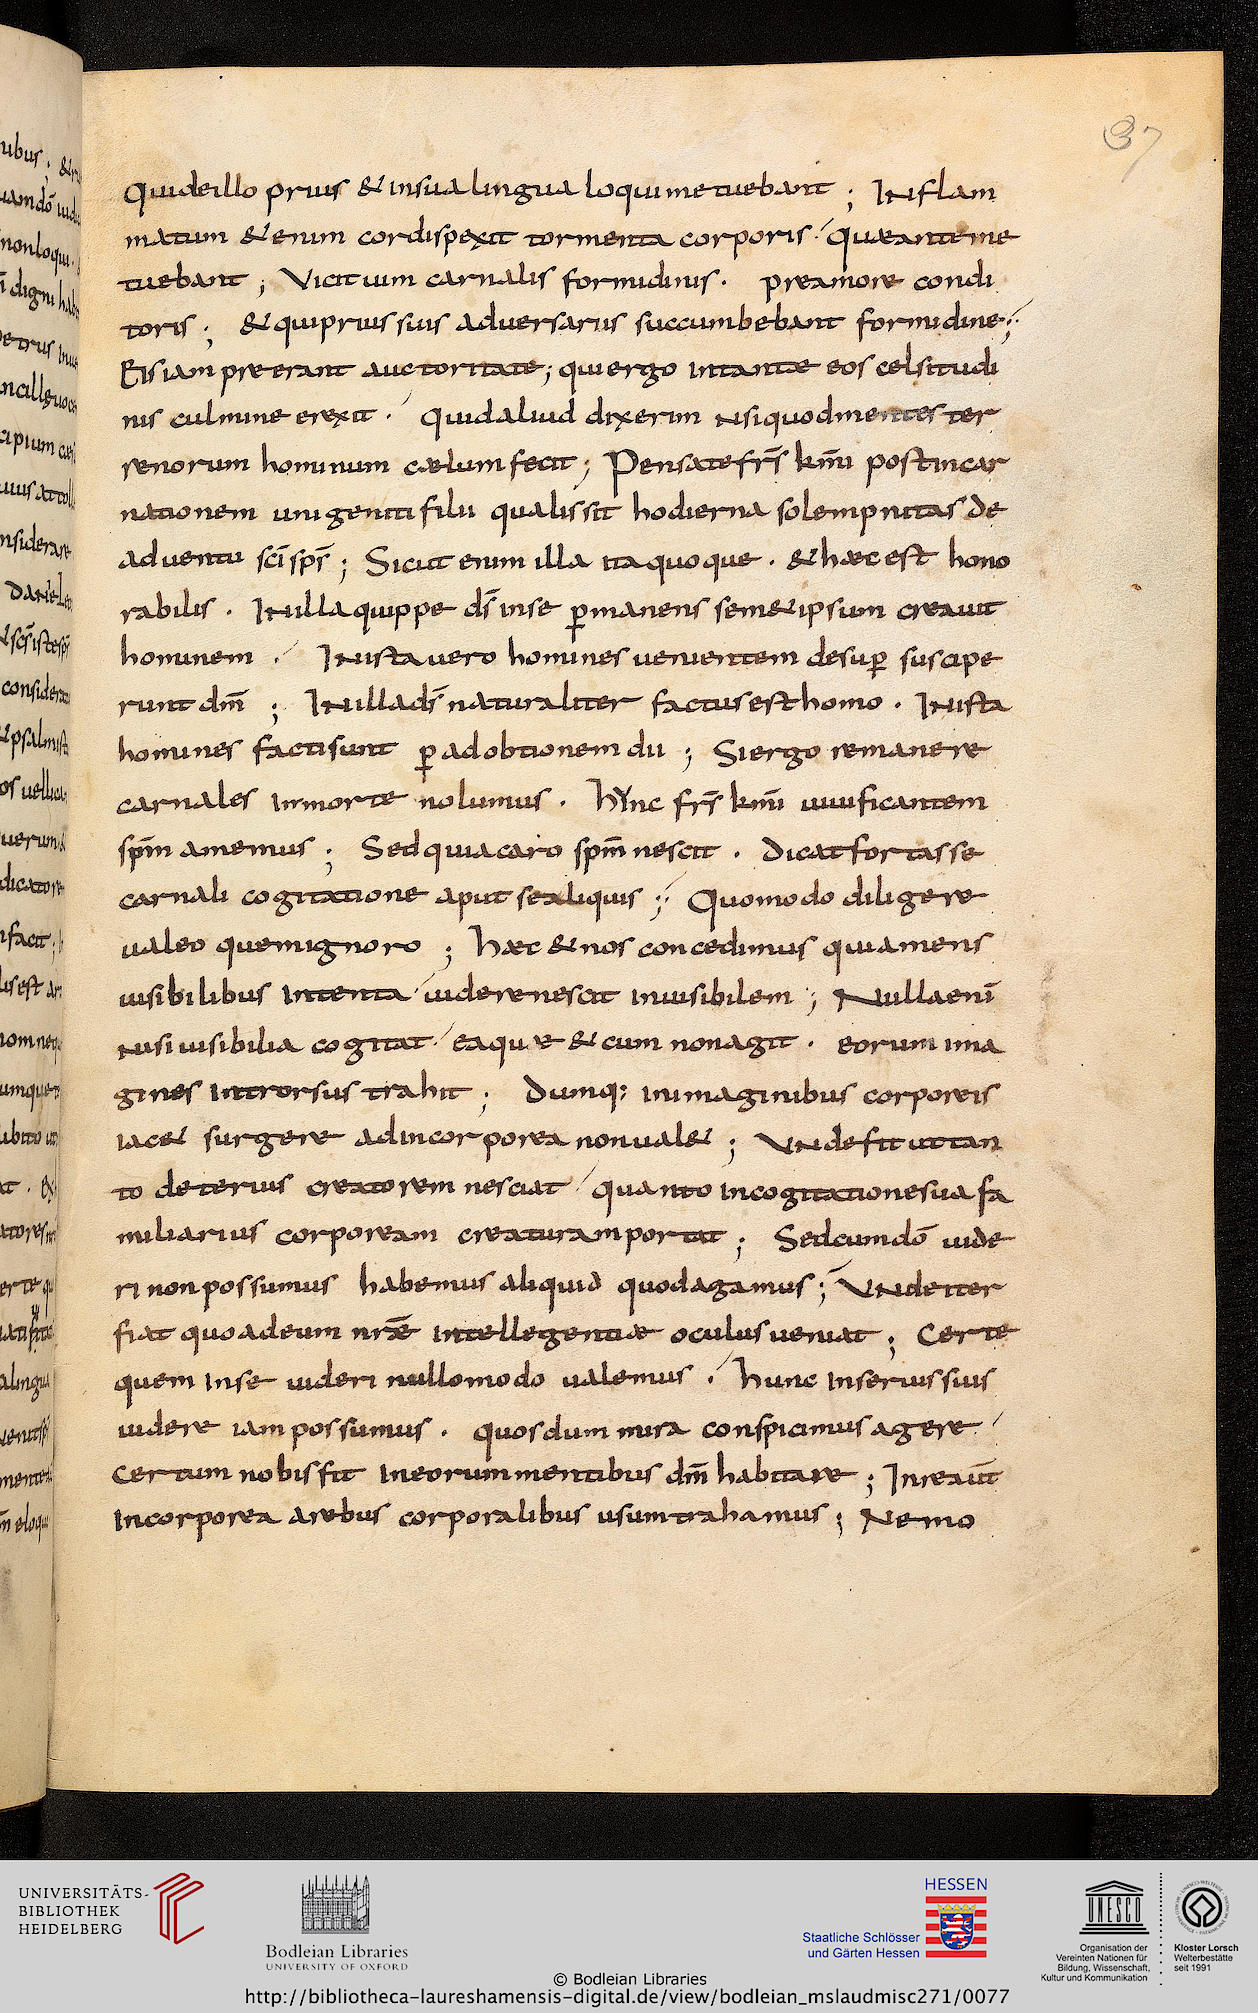 37
Quideillo prius & insua lingua loqui metuebant ; Inflam
matum & enim cor dispexit tormenta corporis · Quae ante me
tuebant ; Vicit uim carnalis formidinis . prae amore condi
toris ; & qui prius suis adversariis succumbebant formidine ;
Eis iam praeerant auctoritate ; qui ergo intantae eos celsitudi
nis culmine erexit . Quid aliud dixerim nsi quod mentes ter
renorum hominum caelum fecit ; Pensate frs kmi post incar
nationem unigeniti filii qualis sit hodierna solempnitas de
adventu sci sps ; Sicut enim illa ita quoque . & haec est hono
rabilis . In illa quippe ds inse pmanens sem&ipsum creauit
hominem . In ista vero homines uenientem desup suscipe
runt dm ; In illa ds naturaliter factus est homo . In ista
homines facti sunt p adobtionem dii ; Si ergo remanere
carnales in morte nolumus . hYnc frs kmi uiuificantem
spm amemus ; Sed quia caro spm nescit . dicat fortasse
carnali cogitatione aput se aliquis ; Quomodo diligere
ualeo quem ignoro ; haec & nos concedimus quia mens
uisibilibus intenta uidere nescit inuisibilem ; Nulla eni
nisi uisibilia cogitat eaquae & cum non agit . eorum ima
gines introrsus trahit ; dumq: inimaginibus corporeis
iac& surgere ad incorporea non ual& ; Vnde fit ut tan
to deterius creatorem nesciat quanto in cogitatione sua fa
miliarius corpoream creaturam portat ; Sed cum do uide
ri non possumus habemus aliquid quod agamus ; Vnde iter
fiat quo adeum nrae intellegentiae oculus ueniat ; Certe
quem inse uideri nullomodo ualemus . hunc in seruis suis
uidere iam possumus . quos dum mira conspicimus agere
Certum nobis fit in eorum mentibus dm habitare ; In re aut
incorporea a rebus corporalibus usum trahamus ; Nemo
UNIVERSITÄTS-
BIBLIOTHEK
HEIDELBERG
Bodleian Libraries
UNIVERSITY OF OXFORD
HESSEN
Staatliche Schlösser
und Gärten Hessen
UNESCO
Organisation der
Vereinten Nationen für
Bildung, Wissenschaft,
Kultur und Kommunikation
Kloster Lorsch
Welterbestätte
seit 1991
© Bodleian Libraries
http://bibliotheca-laureshamensis-digital.de/view/bodleian_mslaudmisc271/0077